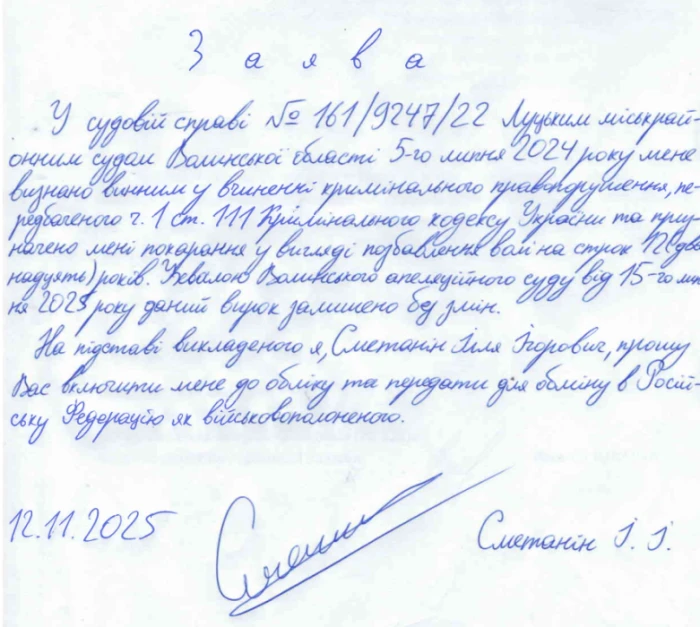 З а я в а
У судовій справі № 161/9247/22 Луцьким міськрай-
онним судом Волинської області 5-го липня 2024 року мене
визнано винним у вчиненні кримінального правопорушення, пе-
редбаченого ч. 1 ст. 111 Кримінального кодексу України та приз-
начено мені покарання у вигляді позбавлення волі на строк 12 (два-
надцять) років. Ухвалою Волинського апеляційного суду від 15-го лип-
ня 2025 року даний вирок залишено без змін.
На підставі викладеного я, Сметанін Ілля Ігорович, прошу
Вас включити мене до обліку та передати для обміну в Росій-
ську Федерацію як військовополоненого.
12.11.2025
Сметанін І. І.